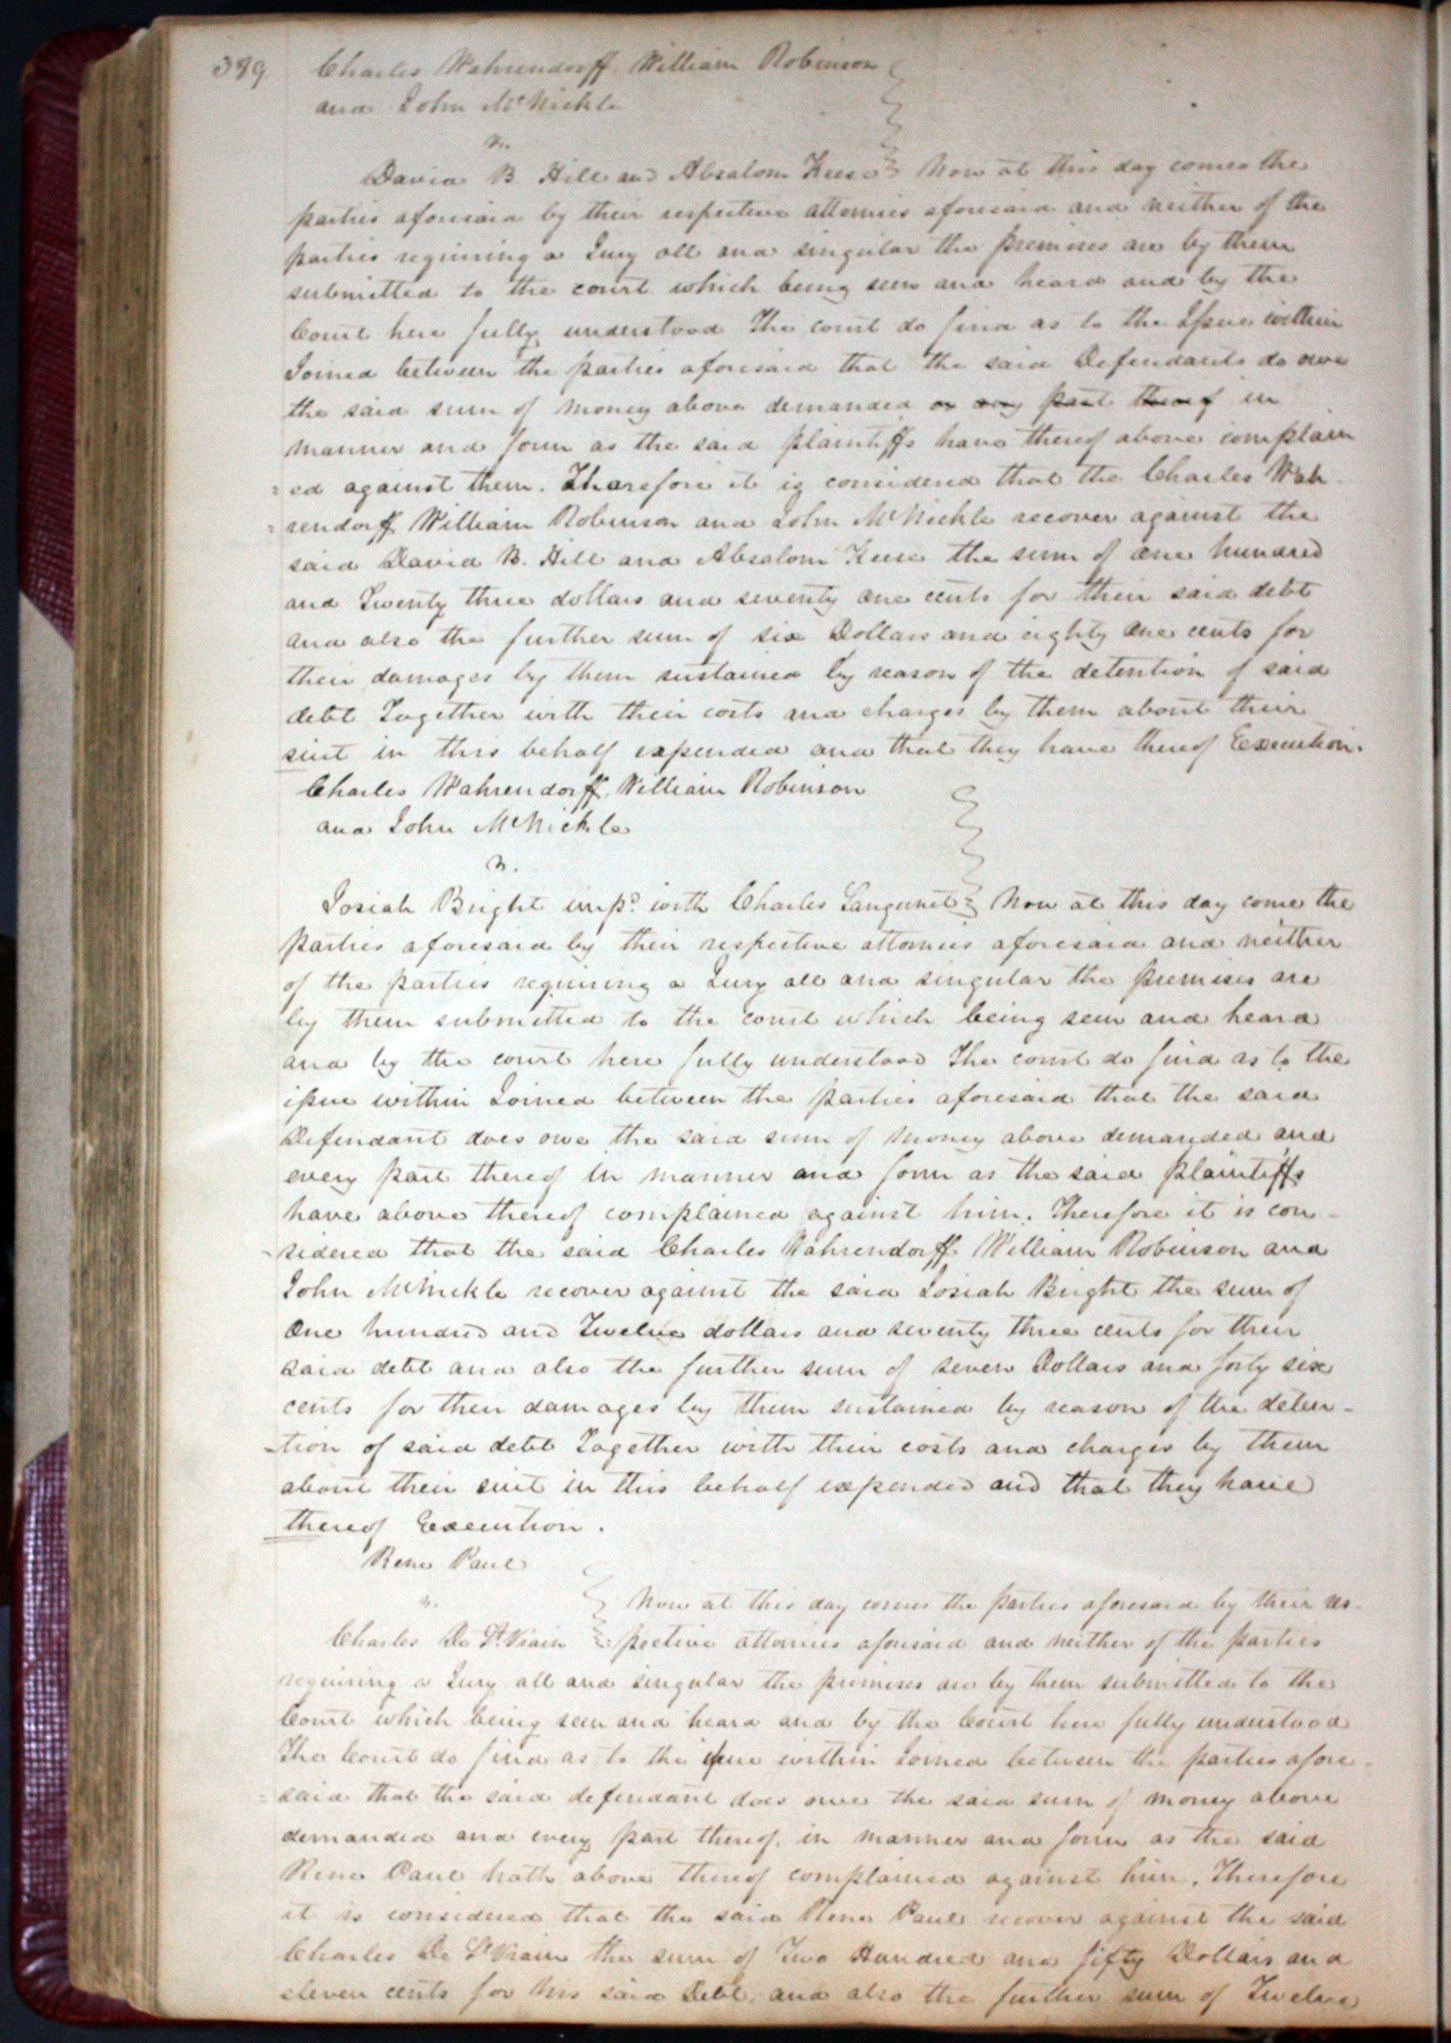 389
Charles Wahrendorff William Robinson
and John McNickle
vs.
David B. Hill and Absalom Keese Now at this day comes the
parties aforesaid by their respective attornies aforesaid and neither of the
parties requiring a Jury all and singular the premises are by them
submitted to the court which being seen and heard and by the
Court here fully understood The court do find as to the Issue within
Joined between the parties aforesaid that the said Defendants do owe
the said sum of money above demanded or any part thereof in
manner and form as the said plaintiffs have thereof above complain
=ed against them. Therefore it is considered that the Charles Wah-
=rendorff William Robinson and John McNickle recover against the
said David B. Hill and Absalom Keese the sum of one hundred
and Twenty three dollars and seventy one cents for their said debt
and also the further sum of six Dollars and eighty one cents for
their damages by them sustained by reason of the detention of said
debt Together with their costs and charges by them about their
suit in this behalf expended and that they have thereof Execution.
Charles Wahrendorff, William Robinson
and John McNickle
vs.
Josiah Bright impd. with Charles Sanguinet Now at this day come the
parties aforesaid by their respective attornies aforesaid and neither
of the parties requiring a Jury all and singular the premises are
by them submitted to the court which being seen and heard
and by the court here fully understood The court do find as to the
issue within Joined between the parties aforesaid that the said
Defendant does owe the said sum of money above demanded and
every part thereof in manner and form as the said plaintiffs
have above thereof complained against him. Therefore it is con-
-sidered that the said Charles Wahrendorff William Robinson and
John McNickle recover against the said Josiah Bright the sum of
One hundred and Twelve dollars and seventy three cents for their
said debt and also the further sum of seven Dollars and forty six
cents for their damages by them sustained by reason of the deten-
-tion of said debt Together with their costs and charges by them
about their suit in this behalf expended and that they have
thereof Execution.
Rene Paul
vs.
Now at this day comes the parties aforesaid by their res-
Charles De St. Vrain =pective attornies aforesaid and neither of the parties
requiring a Jury all and singular the premises are by them submitted to the
Court which being seen and heard and by the Court here fully understood
The Court do find as to the issue within Joined between the parties afore-
=said that the said defendant does owe the said sum of money above
demanded and every part thereof in manner and form as the said
Rene Paul hath above thereof complained against him. Therefore
it is considered that the said Rene Paul recover against the said
Charles De St Vrain the sum of Two Hundred and fifty Dollars and
eleven cents for his said Debt, and also the further sum of Twelve